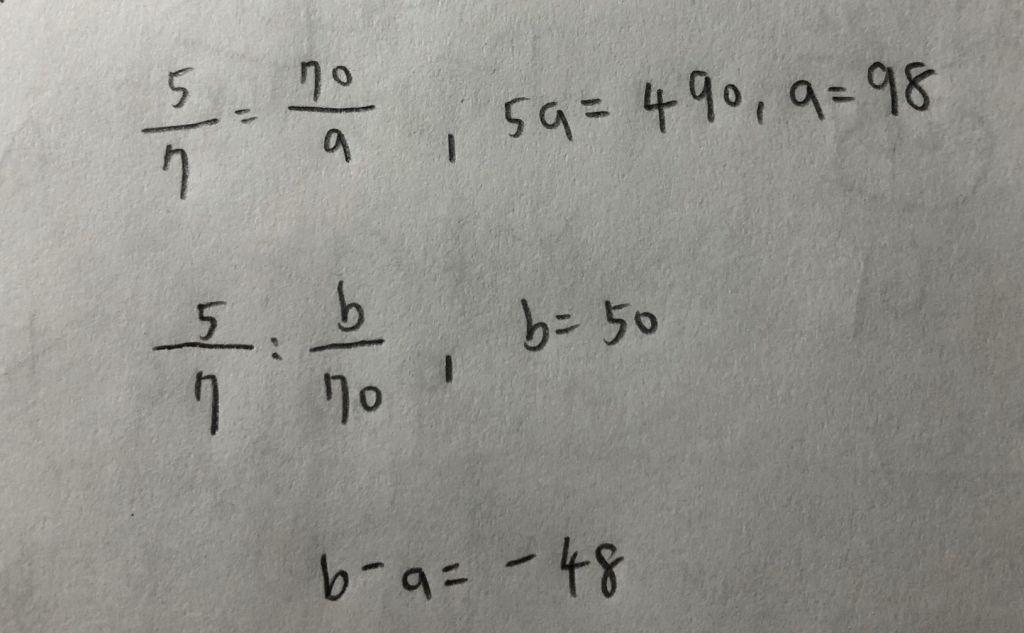 5/7 = 70/a , 5a = 490, a = 98
5/7 : b/70 , b = 50
b - a = - 48